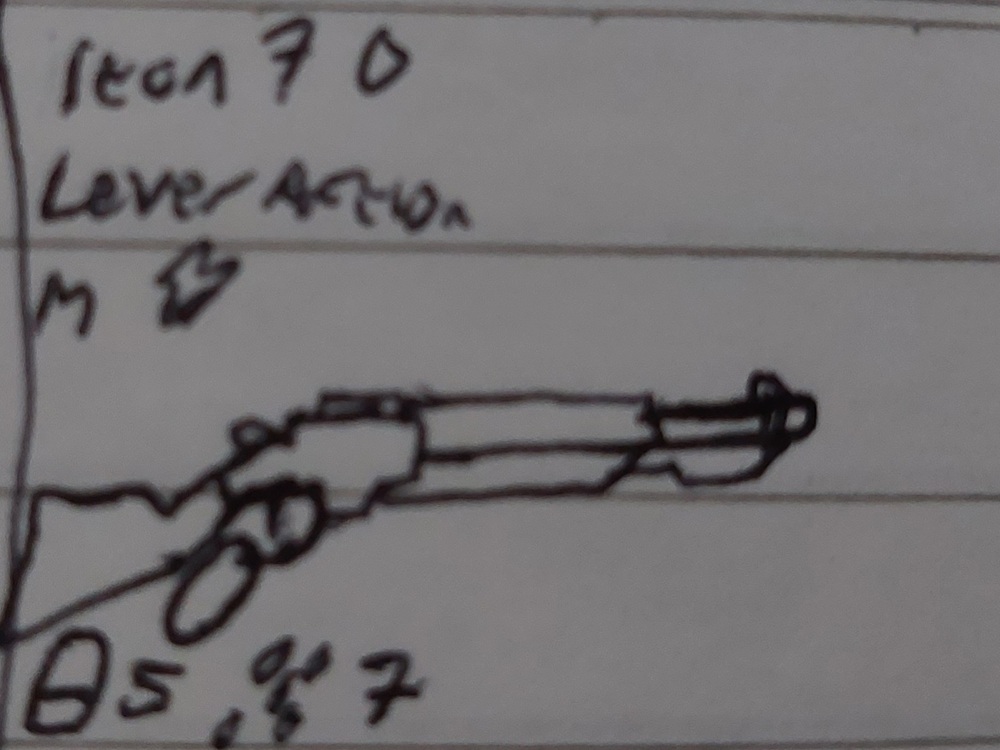 Iron 70
Lever Action
M
5 7